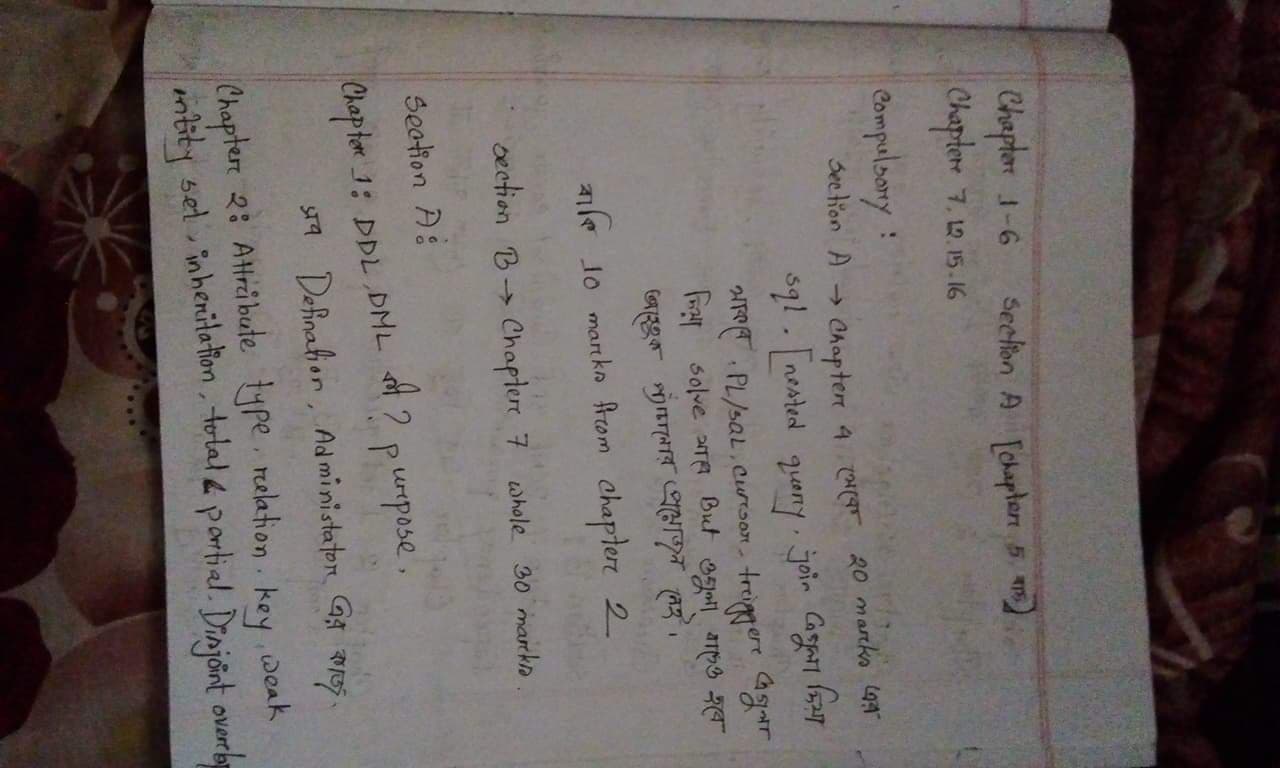 Chapter 1-6 Section A [Chapter 5 বাদ]
Chapter 7, 12, 15, 16
Compulsory :
Section A → Chapter 4 থেকে 20 marks এর
sql. [nested query, join এগুলা দিয়া
থাকবে, PL/SQL, cursor, trigger এগুলা
দিয়া solve যাবে But ওগুলা বাদেও হবে
অহেতুক প্যাচানোর প্রয়োজন নেই।
বাকি 10 marks from chapter 2
Section B → Chapter 7 whole 30 marks.
Section A:
Chapter 1: DDL, DML কী? purpose,
সব Defination, Administator এর কাজ.
Chapter 2: Attribute type, relation, key, weak
entity set, inheritation, total & partial. Disjoint overlap